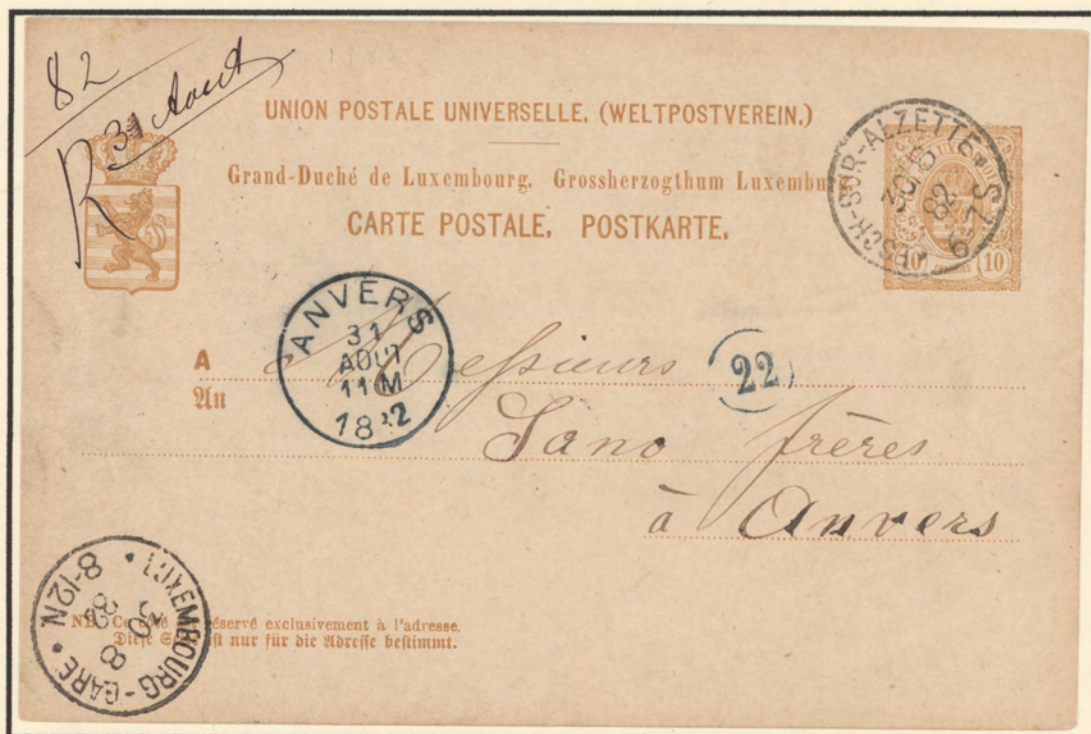 82
R 31 Aout
UNION POSTALE UNIVERSELLE. (WELTPOSTVEREIN.)
Grand-Duché de Luxembourg. Grossherzogthum Luxembu
CARTE POSTALE. POSTKARTE.
ESCH-SUR-ALZETTE
30 8
82
6-7S
10 10
ANVERS
31
AOUT
11 M
1882
22
A Messieurs
An
Sano frères
à Anvers
LUXEMBOURG-GARE
8-12N
30 8
82
NB. Ce réservé exclusivement à l'adresse.
Diese ist nur für die Adresse bestimmt.